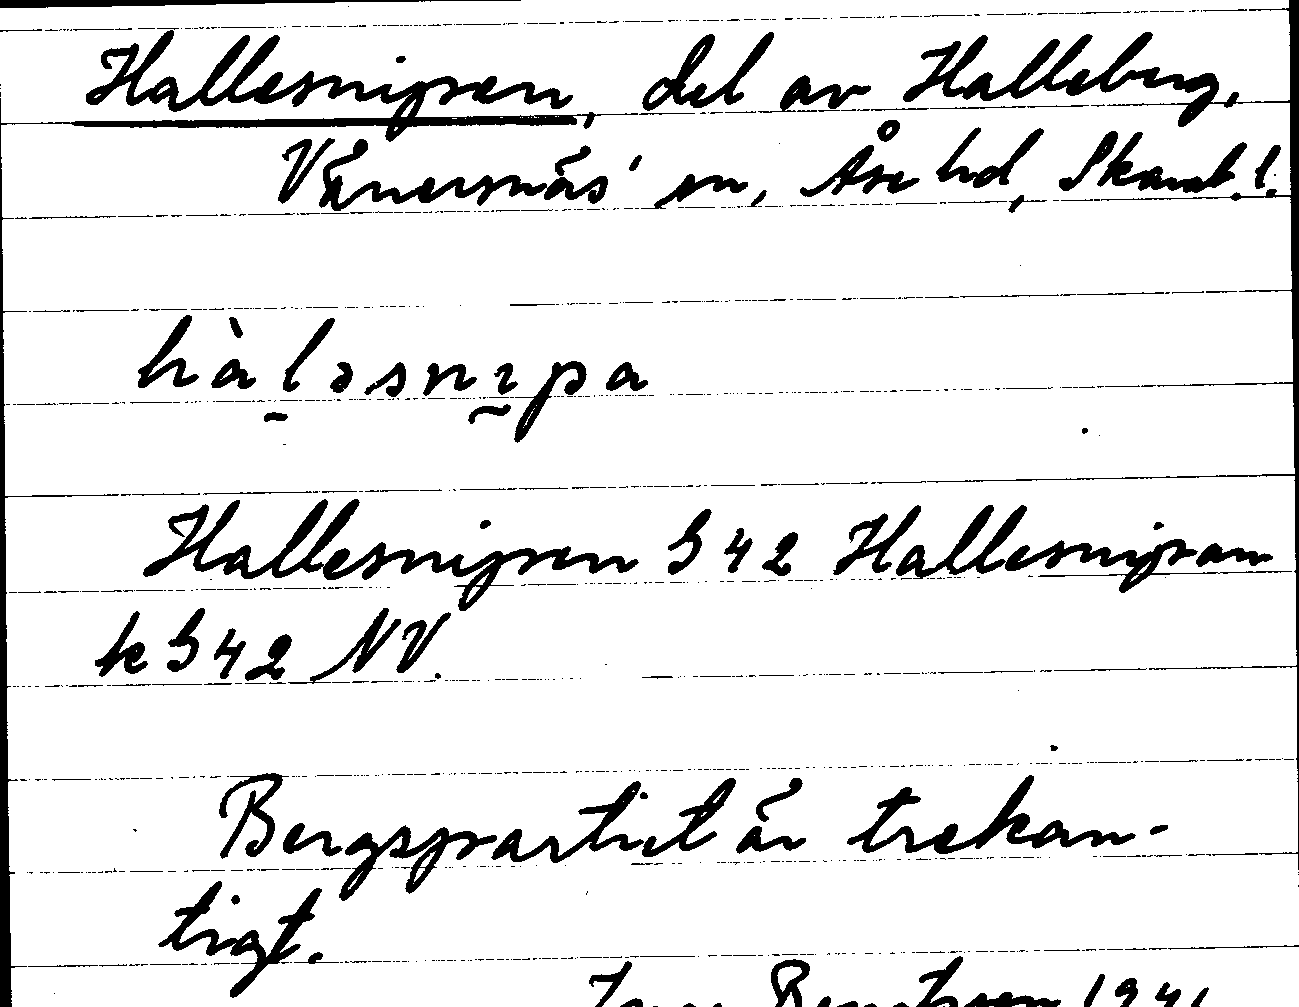 Hallesnipen, del av Halleberg,
Vänersnäs' sn, Åse hd, Skarab. l.
hàləsnɪpa
Hallesnipen G 42 Hallesnipan
k G 42 NV.
Bergspartiet är trekan-
tigt.
1941